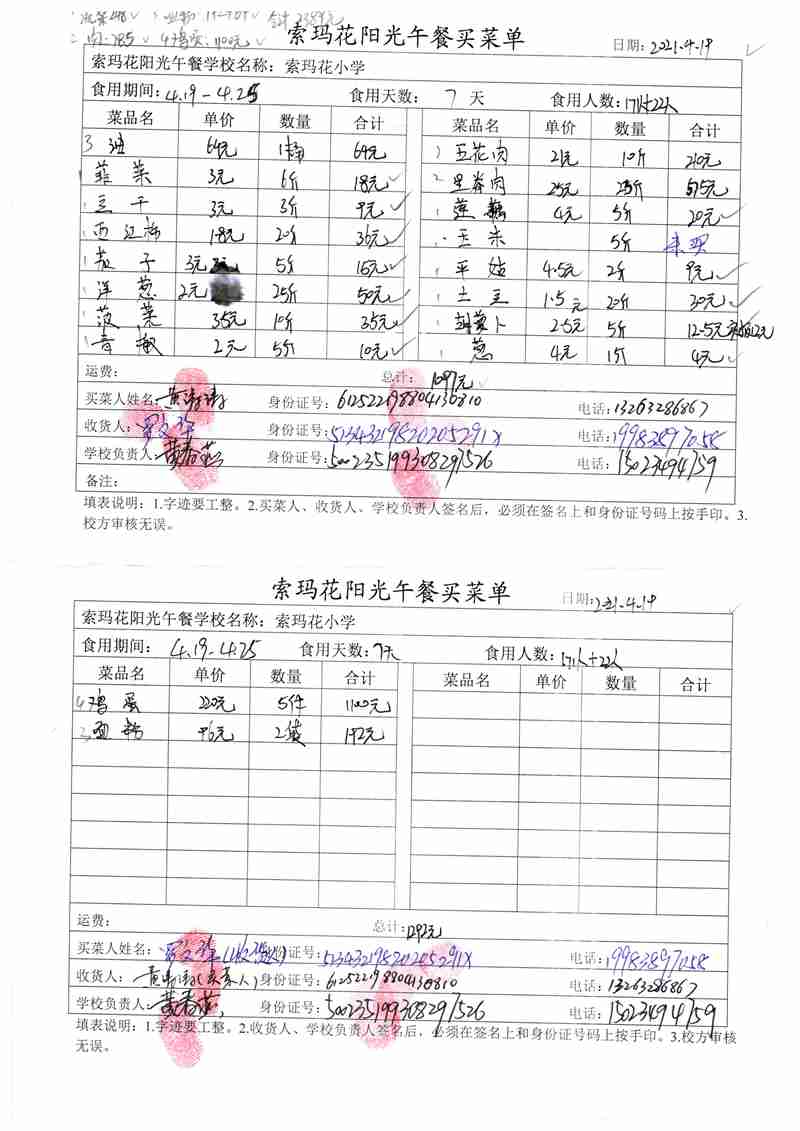 合计2389元
二肉:785 4鸡蛋:1100元
索玛花阳光午餐买菜单
日期:2021.4.19
索玛花阳光午餐学校名称:索玛花小学
食用期间:4.19-4.25 食用天数:7天 食用人数:171人+22人
菜品名 单价 数量 合计 菜品名 单价 数量 合计
3 油 64元 1桶 64元 五花肉 21元 10斤 210元
韭菜 3元 6斤 18元 2 里脊肉 25元 23斤 575元
豆干 3元 3斤 9元 莲藕 4元 5斤 20元
西红柿 1.8元 20斤 36元 玉米 5斤 未买
茄子 3元 5斤 15元 平菇 4.5元 2斤 9元
洋葱 2元 25斤 50元 土豆 1.5元 20斤 30元
菠菜 3.5元 10斤 35元 胡萝卜 2.5元 5斤 12.5元
青椒 2元 5斤 10元 葱 4元 1斤 4元
运费: 总计: 1097元
买菜人姓名: 身份证号:612522198804130810 电话:13263286867
收货人: 身份证号:51343219820205291X 电话:19983897058
学校负责人: 身份证号:500235199308297526 电话:15023494759
备注:
填表说明:1.字迹要工整。2.买菜人、收货人、学校负责人签名后,必须在签名上和身份证号码上按手印。3.
校方审核无误。
索玛花阳光午餐买菜单
日期:2021.4.19
索玛花阳光午餐学校名称:索玛花小学
食用期间: 4.19-4.25 食用天数:7天 食用人数:171人+22人
菜品名 单价 数量 合计 菜品名 单价 数量 合计
4 鸡蛋 220元 5件 1100元
面粉 96元 2袋 192元
运费: 总计:1292元
买菜人姓名: 身份证号:51343219820205291X 电话:19983897058
收货人: 身份证号:612522198804130810 电话:13263286867
学校负责人: 身份证号:500235199308297526 电话:15023494759
填表说明:1.字迹要工整。2.收货人、学校负责人签名后,必须在签名上和身份证号码上按手印。3.校方审核
无误。